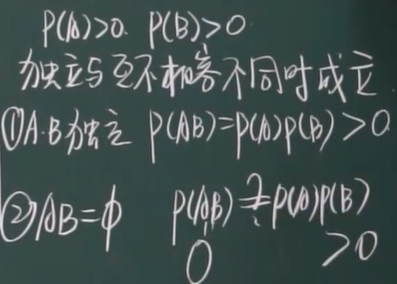 P(A)>0. P(B)>0
独立与互不相容不同时成立
①A.B独立 P(AB)=P(A)P(B)>0
②AB=φ P(AB)≠P(A)P(B)
0 >0